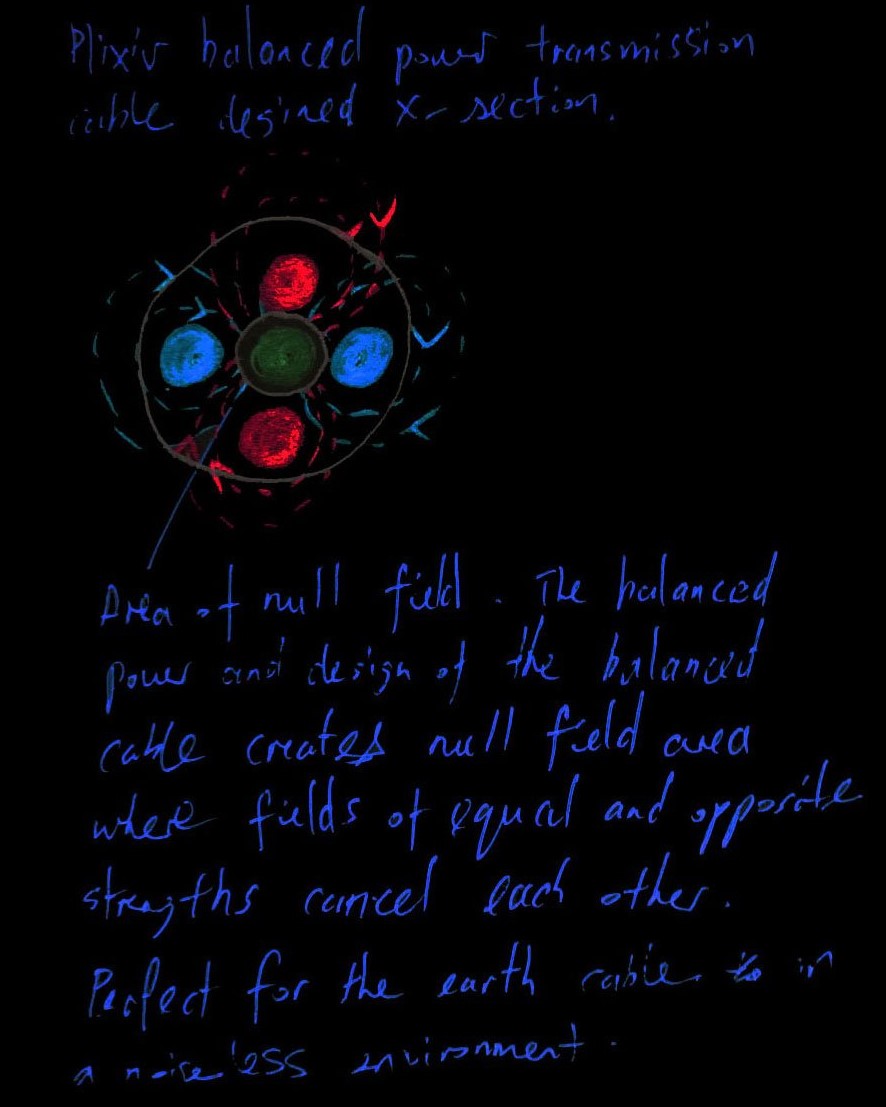 Plixir balanced power transmission
cable desined x-section.
Area of null field. The balanced
power and design of the balanced
cable creates null field area
where fields of equal and opposite
strengths cancel each other.
Perfect for the earth cable in
a noiseless environment.